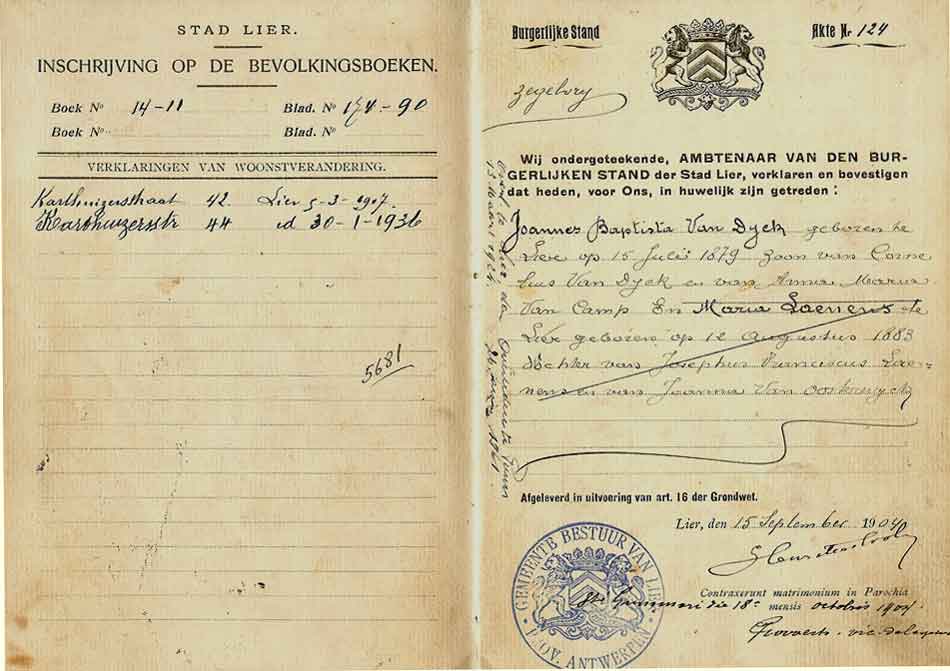 STAD LIER.
INSCHRIJVING OP DE BEVOLKINGSBOEKEN.
Boek No 14-11 Blad. No 174-90
Boek No Blad. No
VERKLARINGEN VAN WOONSTVERANDERING.
Karthuizerstraat 42. Lier 5-3-1907.
Karthuizerstr 44 id 30-1-1936
5681
Burgerlijke Stand
Akte Nr 124
zegelvry
Wij ondergeteekende, AMBTENAAR VAN DEN BUR-
GERLIJKEN STAND der Stad Lier, verklaren en bevestigen
dat heden, voor Ons, in huwelijk zijn getreden :
Joannes Baptista Van Dyck geboren te
Lier op 15 Juli 1879 zoon van Corne
lius Van Dyck en van Anna Maria
Van Camp En Maria Laenens te
Lier geboren op 12 Augustus 1883
dochter van Josephus Franciscus Lae-
nens en van Joanna Van Oosterwyck
Afgeleverd in uitvoering van art. 16 der Grondwet.
Lier, den 15 September 1904
GEMEENTE BESTUUR VAN LIER
PROV. ANTWERPEN
Contraxerunt matrimonium in Parochia
Sti Gummari die 18a mensis octobris 1904